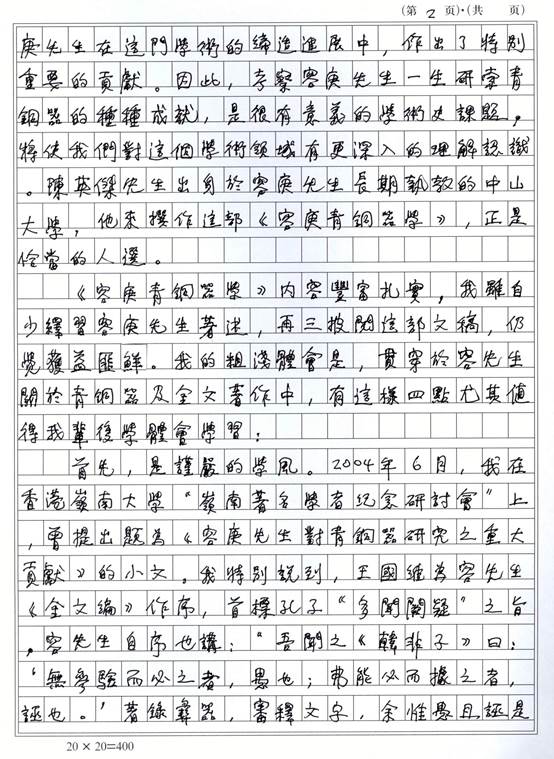 （第 2 页）·（共　页）
庚先生在这門學術的締造進展中，作出了特別
重要的貢獻。因此，考察容庚先生一生研索青
銅器的種種成就，是很有意義的學術史課題，
將使我們對這個學術領域有更深入的理解認識
。陳英傑先生出身於容庚先生長期執教的中山
大學，他來撰作這部《容庚青銅器學》，正是
恰當的人選。
《容庚青銅器學》内容豐富扎實，我雖自
少繹習容庚先生著述，再三披閱這部文稿，仍
覺獲益匪鮮。我的粗淺體會是，貫穿於容先生
關於青銅器及金文著作中，有這樣四點尤其值
得我輩後學體會學習：
首先，是謹嚴的學風。2004年6月，我在
香港嶺南大學“嶺南著名學者纪念研討會”上
，曾提出題為《容庚先生對青銅器研究之重大
貢獻》的小文。我特別説到，王國維為容先生
《金文編》作序，首標孔子“多聞闕疑”之旨
，容先生自序也講：“吾聞之《韓非子》曰：
‘無參驗而必之者，愚也；弗能必而據之者，
誣也。’著錄彝器，審釋文字，余惟愚且誣是
20×20=400